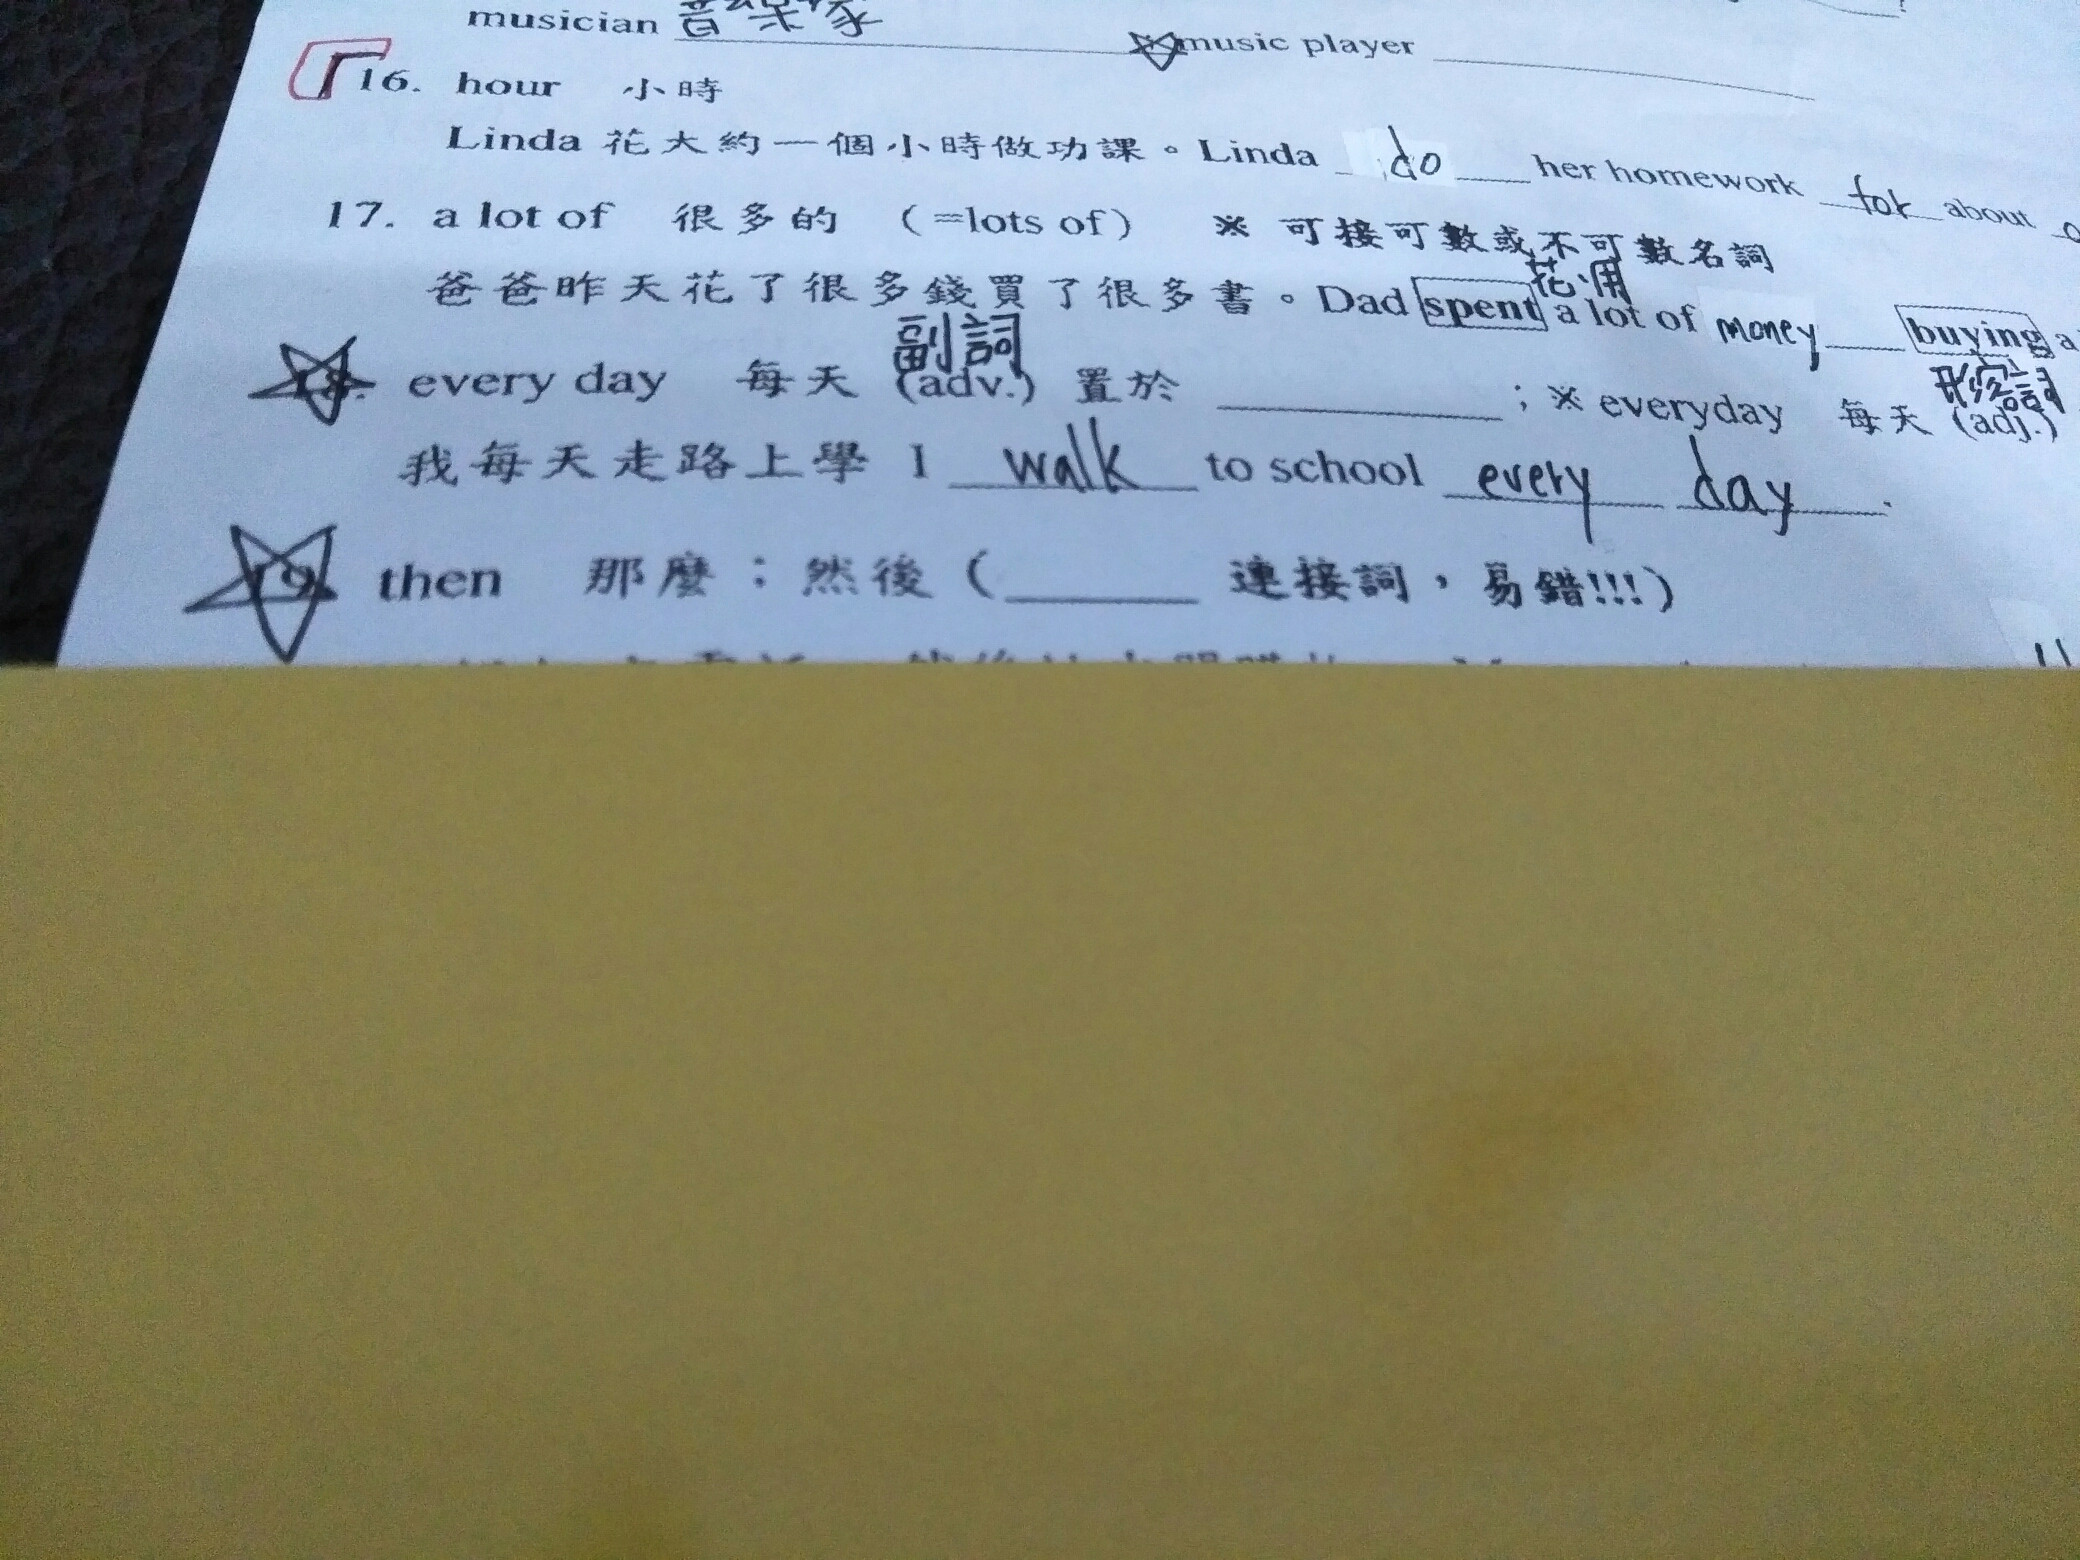 musician 音樂家 music player
16. hour 小時
Linda 花大約一個小時做功課。Linda do her homework for about
17. a lot of 很多的 (=lots of) ※ 可接可數或不可數名詞
花用
爸爸昨天花了很多錢買了很多書。Dad spent a lot of money buying a
副詞 形容詞
18. every day 每天 (adv.) 置於 ; ※ everyday 每天 (adj.)
我每天走路上學 I walk to school every day.
19. then 那麼；然後 ( 連接詞，易錯!!!)